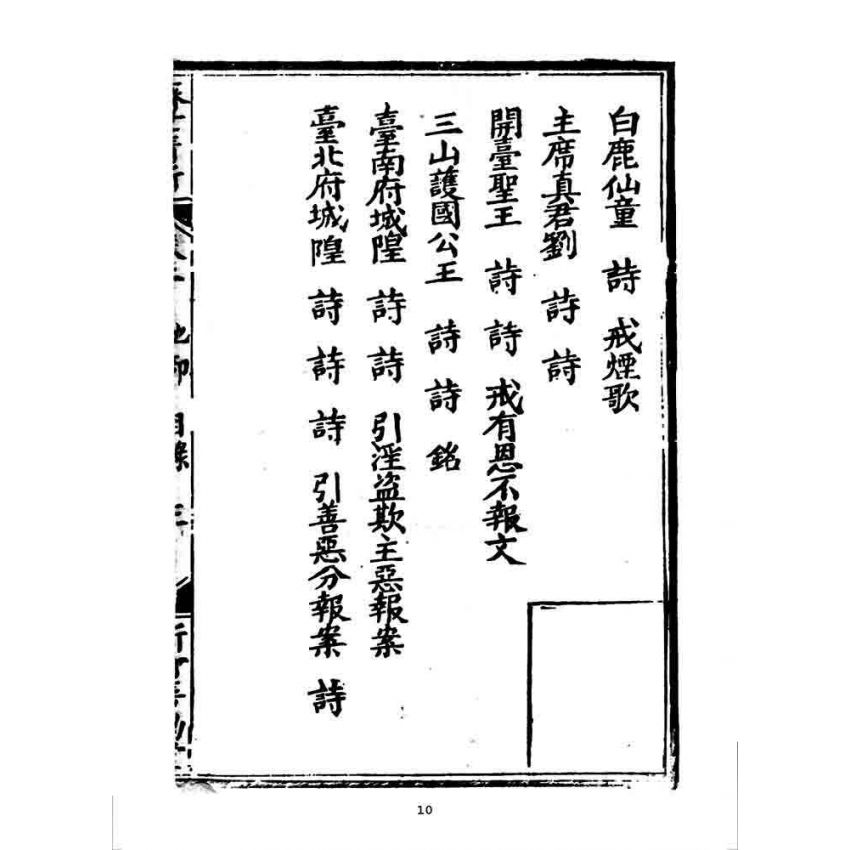 白鹿仙童 詩 戒煙歌
主席真君劉 詩 詩
開臺聖王 詩 詩 戒有恩不報文
三山護國公王 詩 詩 銘
臺南府城隍 詩 詩 引淫盜欺主惡報案
臺北府城隍 詩 詩 詩 引善惡分報案 詩
目錄
10